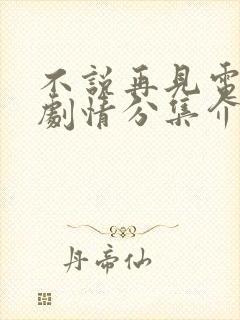 不說再見電
劇情分集介
丹帝仙